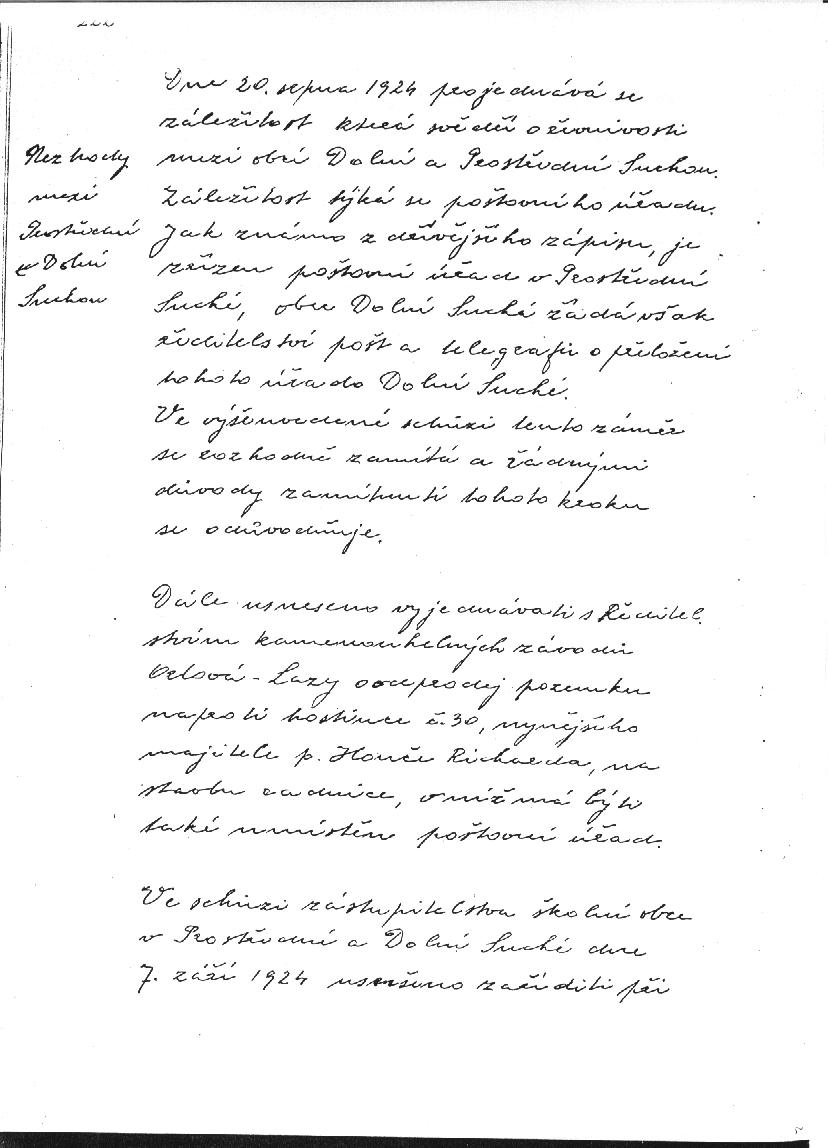 Dne 20. srpna 1924 projednává se
záležitost která svědčí o řevnivosti
mezi obcí Dolní a Prostřední Suchou.
Nezhody
mezi
Prostřední
a Dolní
Suchou
Záležitost týká se poštovního úřadu.
Jak známo z dřívějšího zápisu, je
zřízen poštovní úřad v Prostřední
Suché, obec Dolní Suchá žádá však
ředitelství pošt a telegrafů o přeložení
tohoto úřa do Dolní Suché.
Ve výšeuvedené schůzi tento záměr
se rozhodně zamítá a řádnými
důvody zamítnutí tohoto kroku
se odůvodňuje.
Dále usneseno vyjednávati s Ředitel.
stvím kamenouhelných závodů
Orlová - Lazy o odprodej pozemku
naproti hostince č. 30, nynějšího
majitele p. Honče Richarda, na
stavbu radnice, v níž má býti
také umístěn poštovní úřad.
Ve schůzi zástupitelstva školní obce
v Prostřední a Dolní Suché dne
7. září 1924 usnešeno zaříditi při